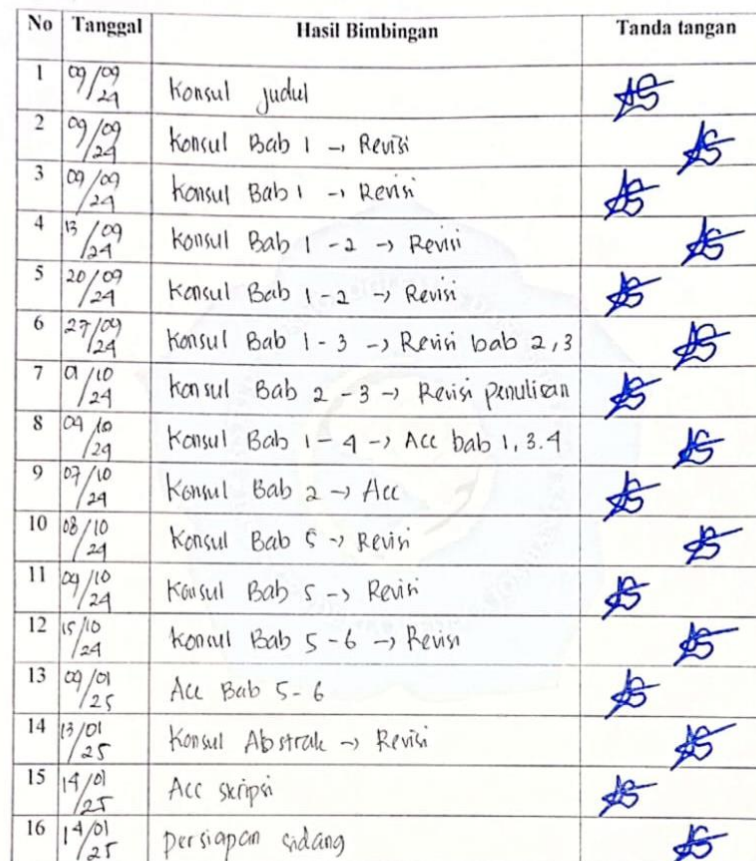 No Tanggal Hasil Bimbingan Tanda tangan
1 09/09/24 Konsul judul
2 09/09/24 Konsul Bab 1 → Revisi
3 09/09/24 Konsul Bab 1 → Revisi
4 13/09/24 Konsul Bab 1-2 → Revisi
5 20/09/24 Konsul Bab 1-2 → Revisi
6 27/09/24 Konsul Bab 1-3 → Revisi bab 2,3
7 01/10/24 Konsul Bab 2-3 → Revisi penulisan
8 04/10/24 Konsul Bab 1-4 → Acc bab 1,3.4
9 07/10/24 Konsul Bab 2 → Acc
10 08/10/24 Konsul Bab 5 → Revisi
11 09/10/24 Konsul Bab 5 → Revisi
12 15/10/24 Konsul Bab 5-6 → Revisi
13 09/01/25 Acc Bab 5-6
14 13/01/25 Konsul Abstrak → Revisi
15 14/01/25 Acc skripsi
16 14/01/25 persiapan sidang